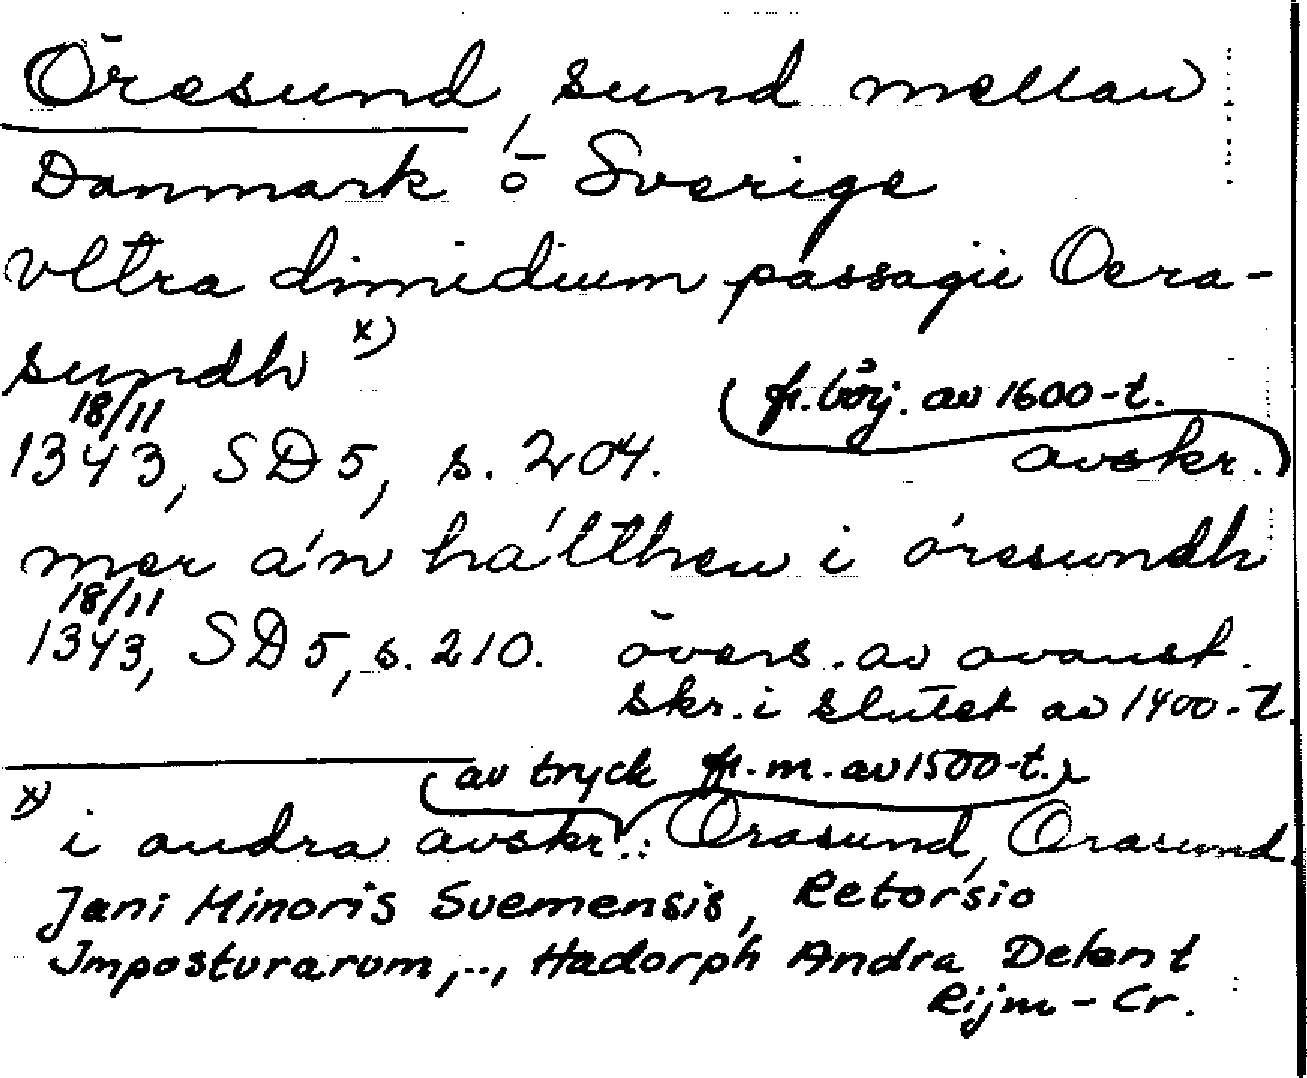 Öresund, sund mellan
Danmark o Sverige
vltra dimedium passagii Oera-
sundh x)
fr. börj. av 1600-t.
18/11
1343, SD 5, s. 204. avskr.
mer án hálfthen i óresundh
18/11
1343, SD 5, s. 210. övers. av ovanst.
skr. i slutet av 1400-t.
av tryck fr. m. av 1500-t.
x) i andra avskr.: Orasund, Orasund.
Jani Minoris Suemensis, Retorsio
Imposturarum,.., Hadorph Andra Delen t
Rijm-Cr.